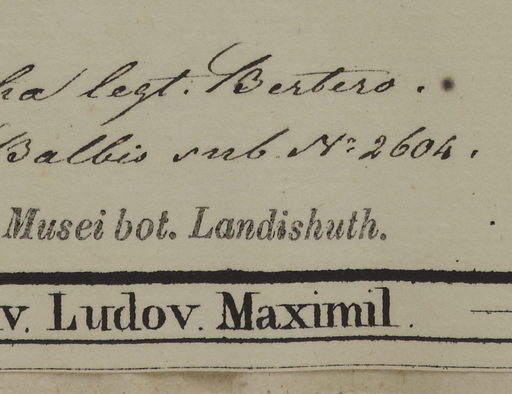 ha legt. Bertero.
Balbis sub Nr. 2604.
Musei bot. Landishuth.
v. Ludov. Maximil.